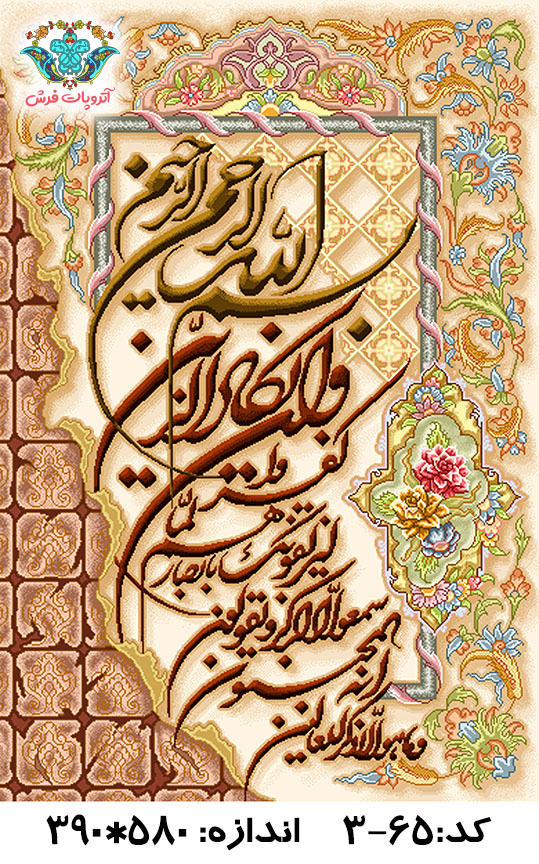 آتروپات فرش
بسم الله الرحمن الرحیم
وان یکاد الذین
کفروا
لیزلقونک بابصارهم لما
سمعوا الذکر و یقولون
انه لمجنون
و ما هو الا ذکر للعالمین
کد:۶۵-۳ اندازه: ۵۸۰*۳۹۰